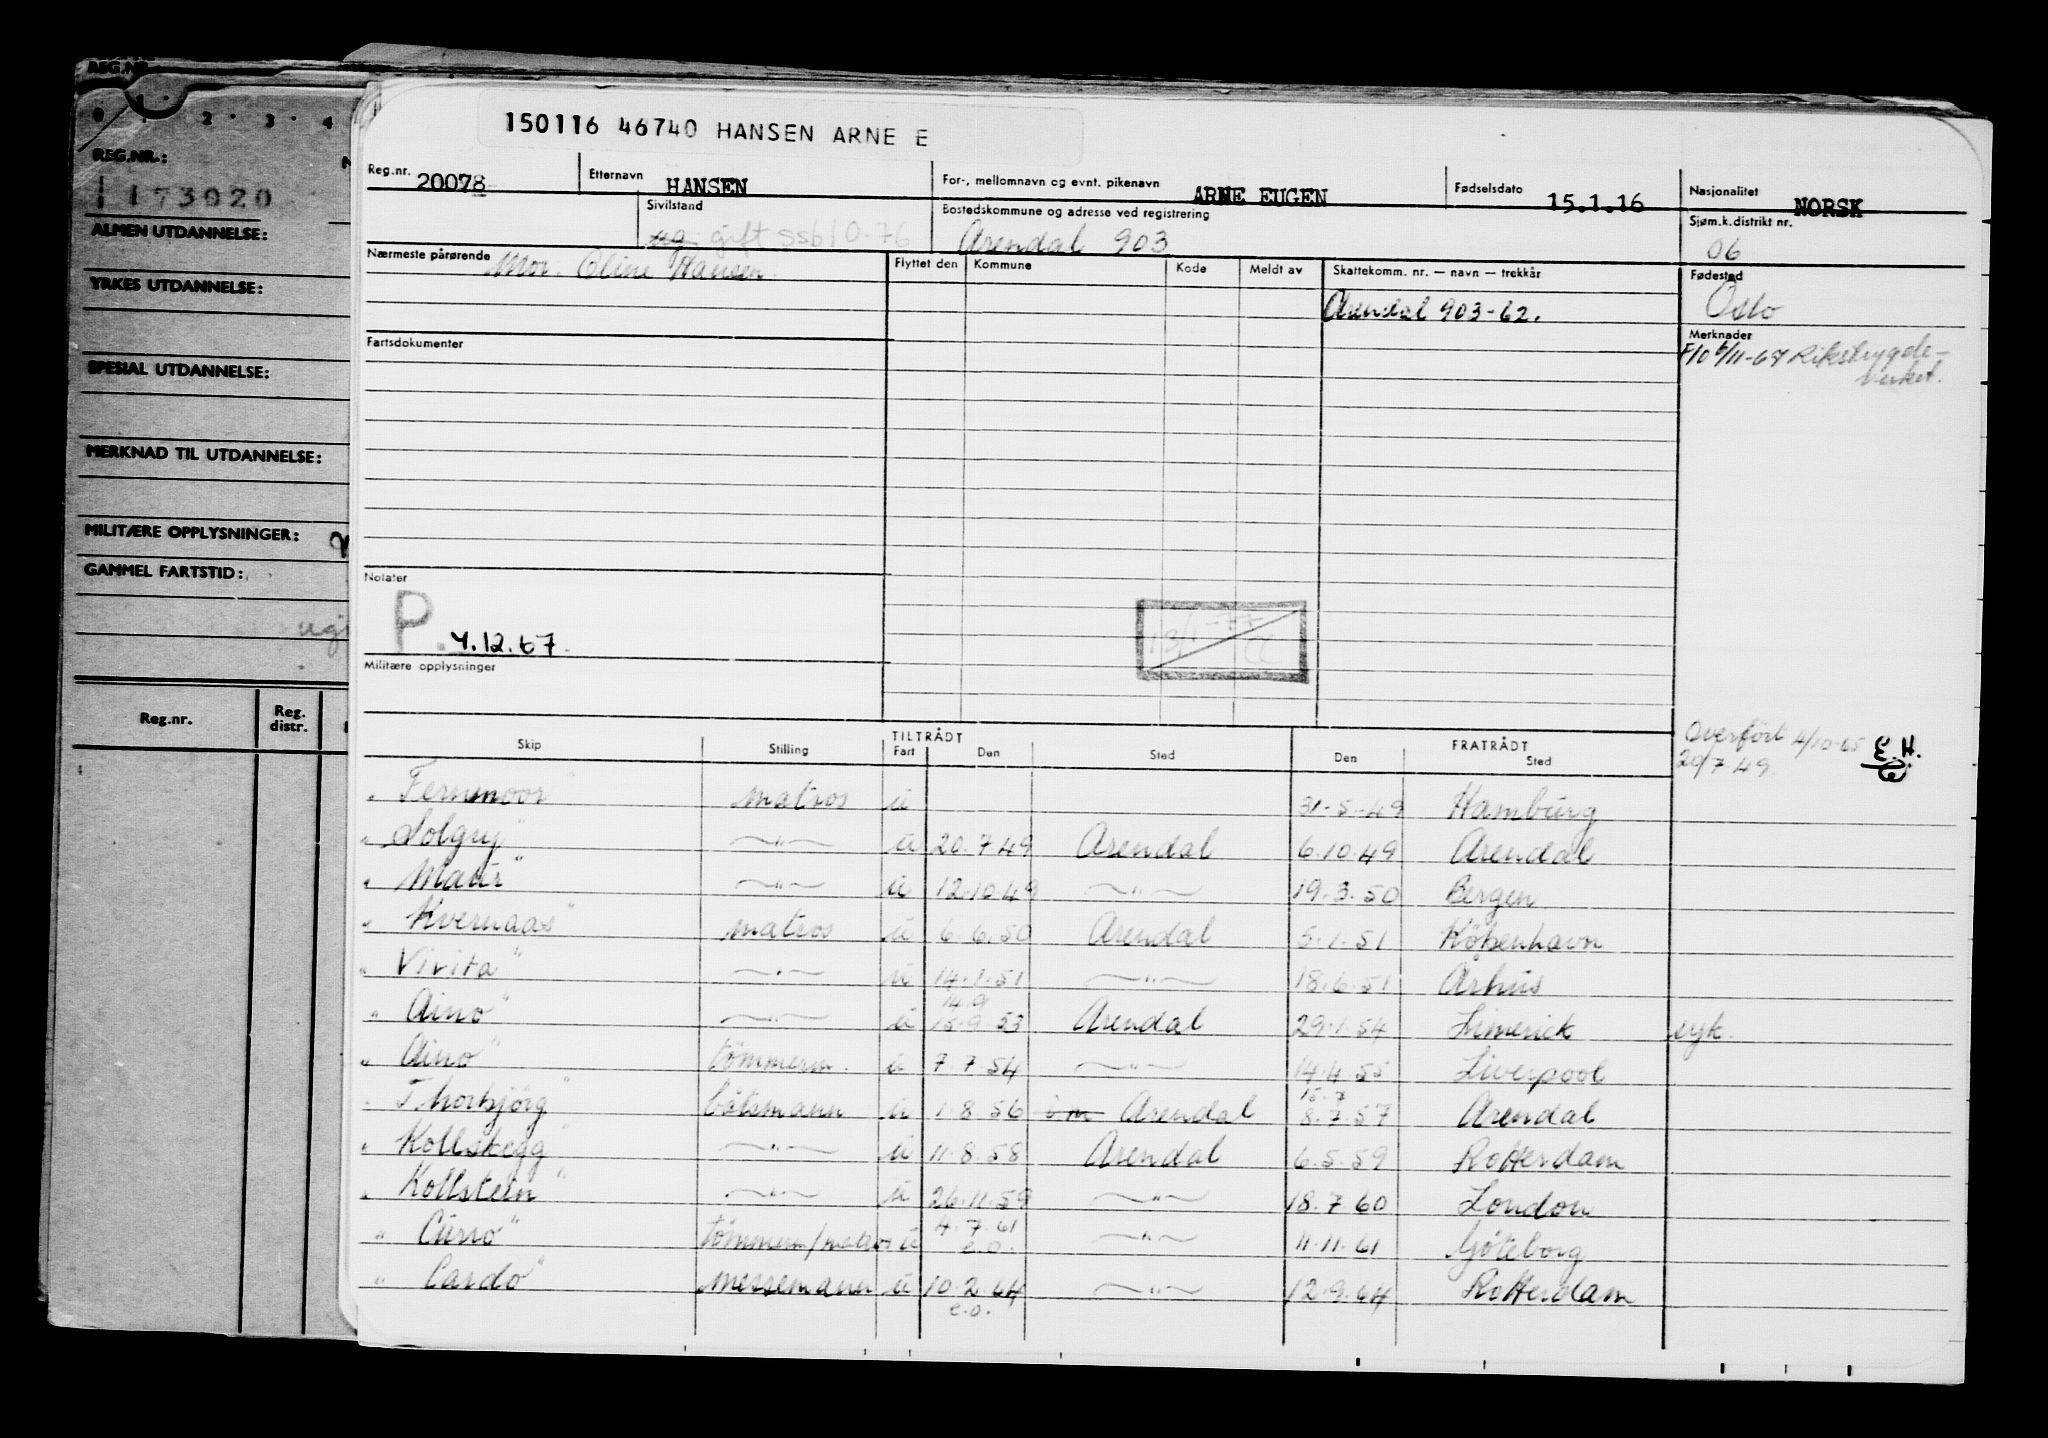 REG.NR.
0 1 · 2 · 3 · 4
REG.NR.:
173020
ALMEN UTDANNELSE:
YRKES UTDANNELSE:
SPESIAL UTDANNELSE:
MERKNAD TIL UTDANNELSE:
MILITÆRE OPPLYSNINGER:
GAMMEL FARTSTID:
Reg.nr. Reg. distr.
150116 46740 HANSEN ARNE E
Reg.nr. 20078 Etternavn HANSEN For-, mellomnavn og evnt. pikenavn ARNE EUGEN Fødselsdato 15.1.16 Nasjonalitet NORSK
Sivilstand ug. gift SSB 10.76 Bostedskommune og adresse ved registrering Arendal 903 Sjøm.k.distrikt nr. 06
Nærmeste pårørende Mor. Oline Hansen. Flyttet den Kommune Kode Meldt av Skattekomm. nr. — navn — trekkår Fødested Oslo
Arendal 903-62.
Fartsdokumenter
Merknader
F/10 6/11-67 Rikstrygde-
verket.
Notater
P. 4.12.67.
13/1-77
Militære opplysninger
Overført 4/10-65 E.H.
20/7 49
TILTRÅDT FRATRÅDT
Skip Stilling Fart Den Sted Den Sted
" Fernmoor" matros u 31-5-49 Hamburg
" Solgry" —"— u 20.7 49 Arendal 6.10.49 Arendal
" Maur" —"— u 12.10.49 —"— 19.3.50 Bergen
" Kvernaas" matros u 6.6.50 Arendal 5.1.51 Köbenhavn
" Vivita" —"— u 14.1.51 —"— 18.6.51 Århus
14.9
" Aino" —"— u 15.9 53 Arendal 29.1.54 Limerick syk.
" Aino" tömmerm. u 7.7.54 —"— 14.4.55 Liverpool
15.7
" Thorbjörg" båtsmann u 1.8.56 Arendal 8.7.57 Arendal
" Kollskegg" —"— u 11.8.58 Arendal 6.5.59 Rotterdam
" Kollstein" —"— u 26.11.59 —"— 18.7.60 London
" Curro" tömmerm/matros u 4.7.61 —"— 11.11.61 Göteborg
e.o.
" Cardo" messemann u 10.2.64 —"— 12.9.64 Rotterdam
e.o.